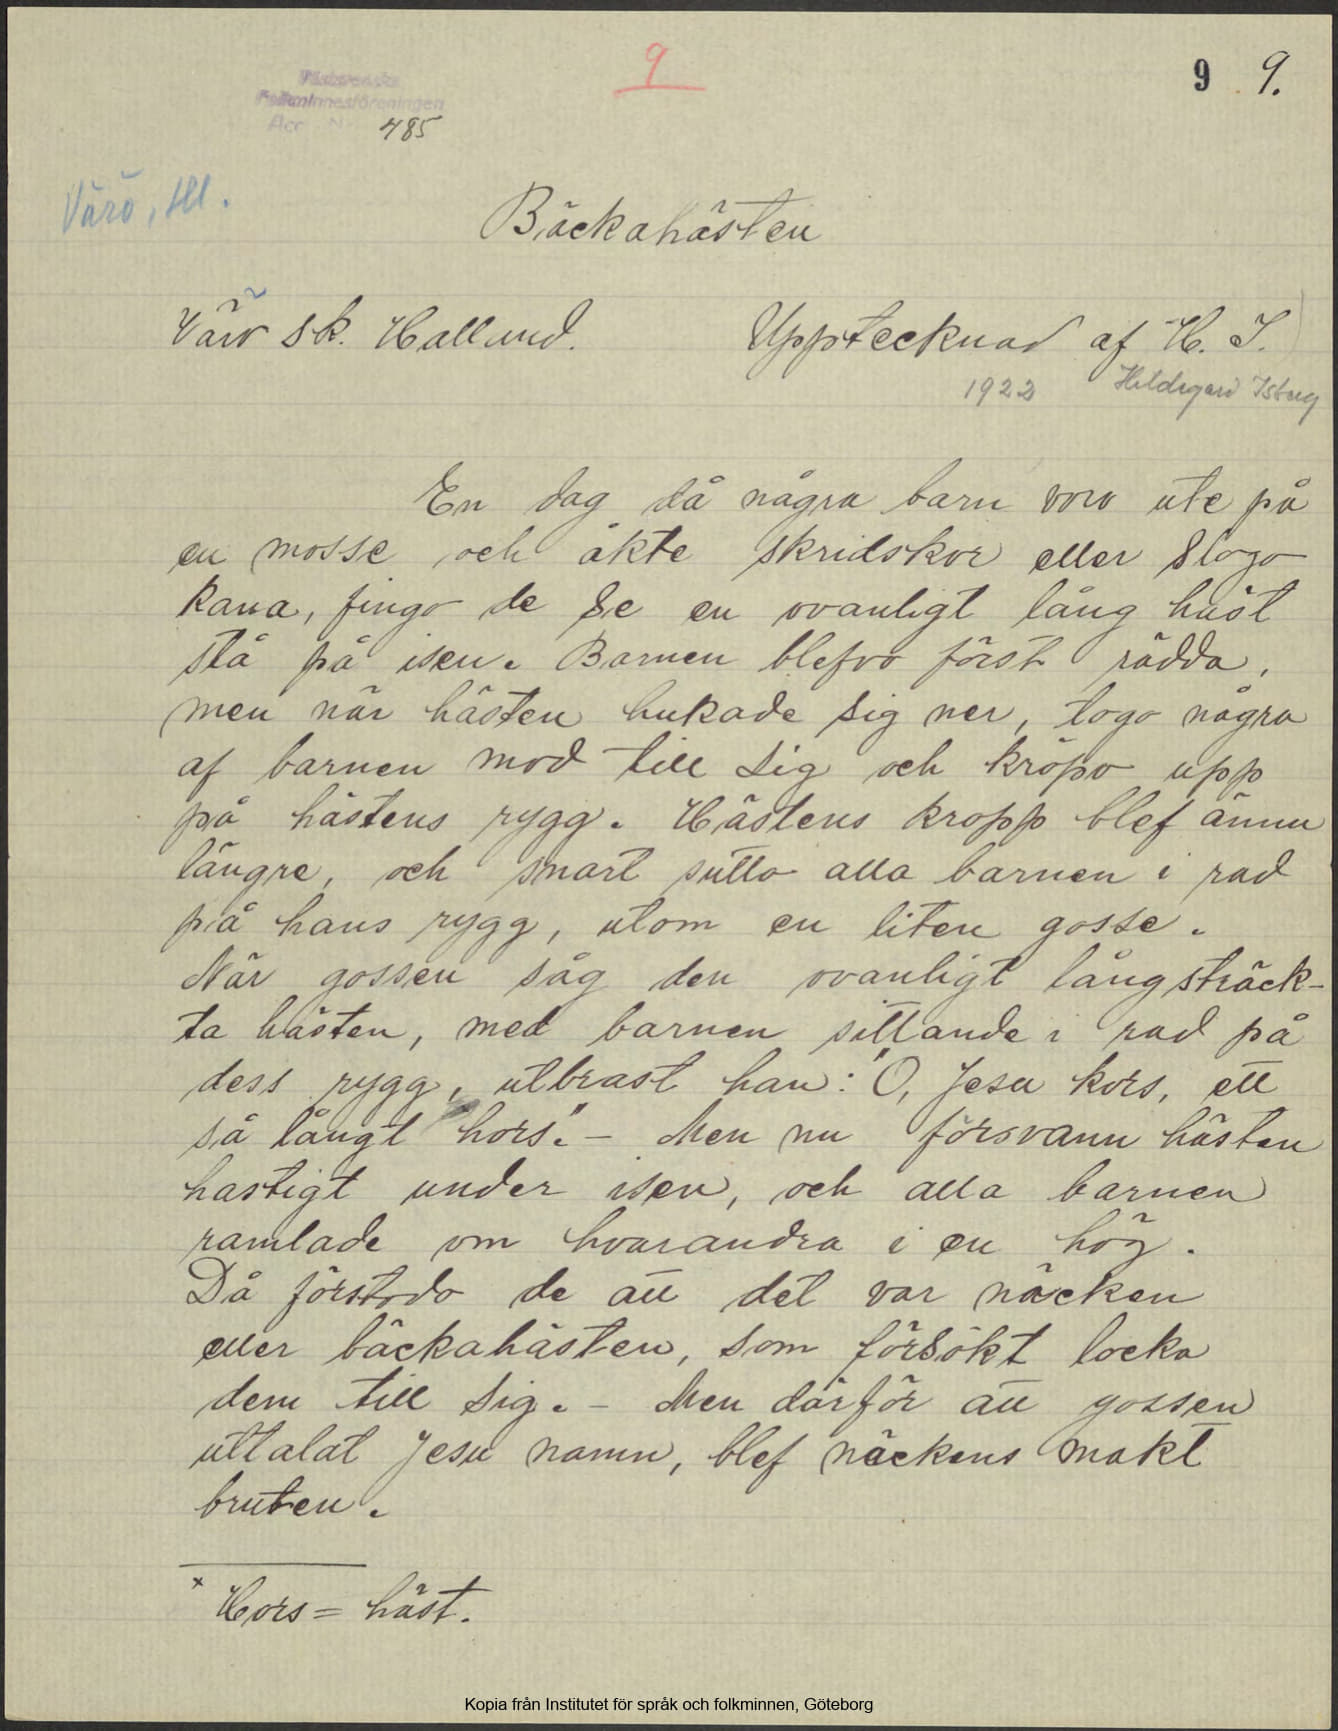 9
9 9.
Västsvenska
Folkminnesföreningen
Acc N. 485
Värö, Hll.
Bäckahästen
Värö sk. Halland. Upptecknad af H. I.
1922 Hildegard Isberg
En dag då några barn voro ute på
en mosse och åkte skridskor eller slogo
kana, fingo de se en ovanligt lång häst
stå på isen. Barnen blefvo först rädda,
men när hästen hukade sig ner, togo några
af barnen mod till sig och kröpo upp
på hästens rygg. Hästens kropp blef ännu
längre, och snart sutto alla barnen i rad
på hans rygg, utom en liten gosse.
När gossen såg den ovanligt långsträck-
ta hästen, med barnen sittande i rad på
dess rygg, utbrast han: "O, Jesu kors, ett
så långt hors." – Men nu försvann hästen
hastigt under isen, och alla barnen
ramlade om hvarandra i en hög.
Då förstodo de att det var näcken
eller bäckahästen, som försökt locka
dem till sig. – Men därför att gossen
uttalat Jesu namn, blef näckens makt
bruten.
x Hors = häst.
Kopia från Institutet för språk och folkminnen, Göteborg